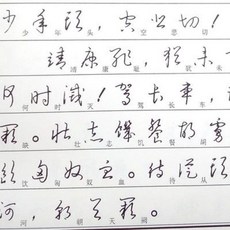 少年头，空悲切！
靖康耻，犹未
何时灭！驾长车，
缺。壮志饥餐胡虏
饮匈奴血。待从头
河，朝天阙。